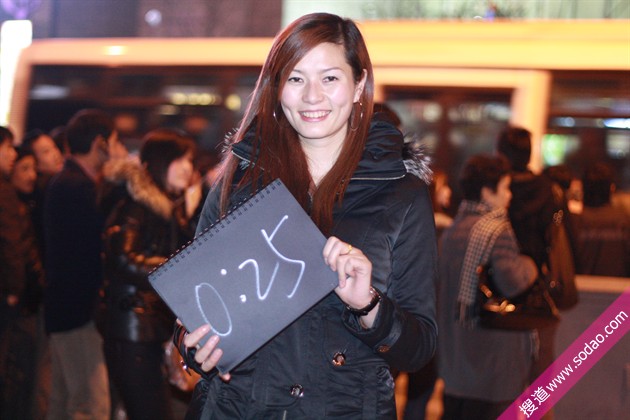 0:25
搜道 www.sodao.com